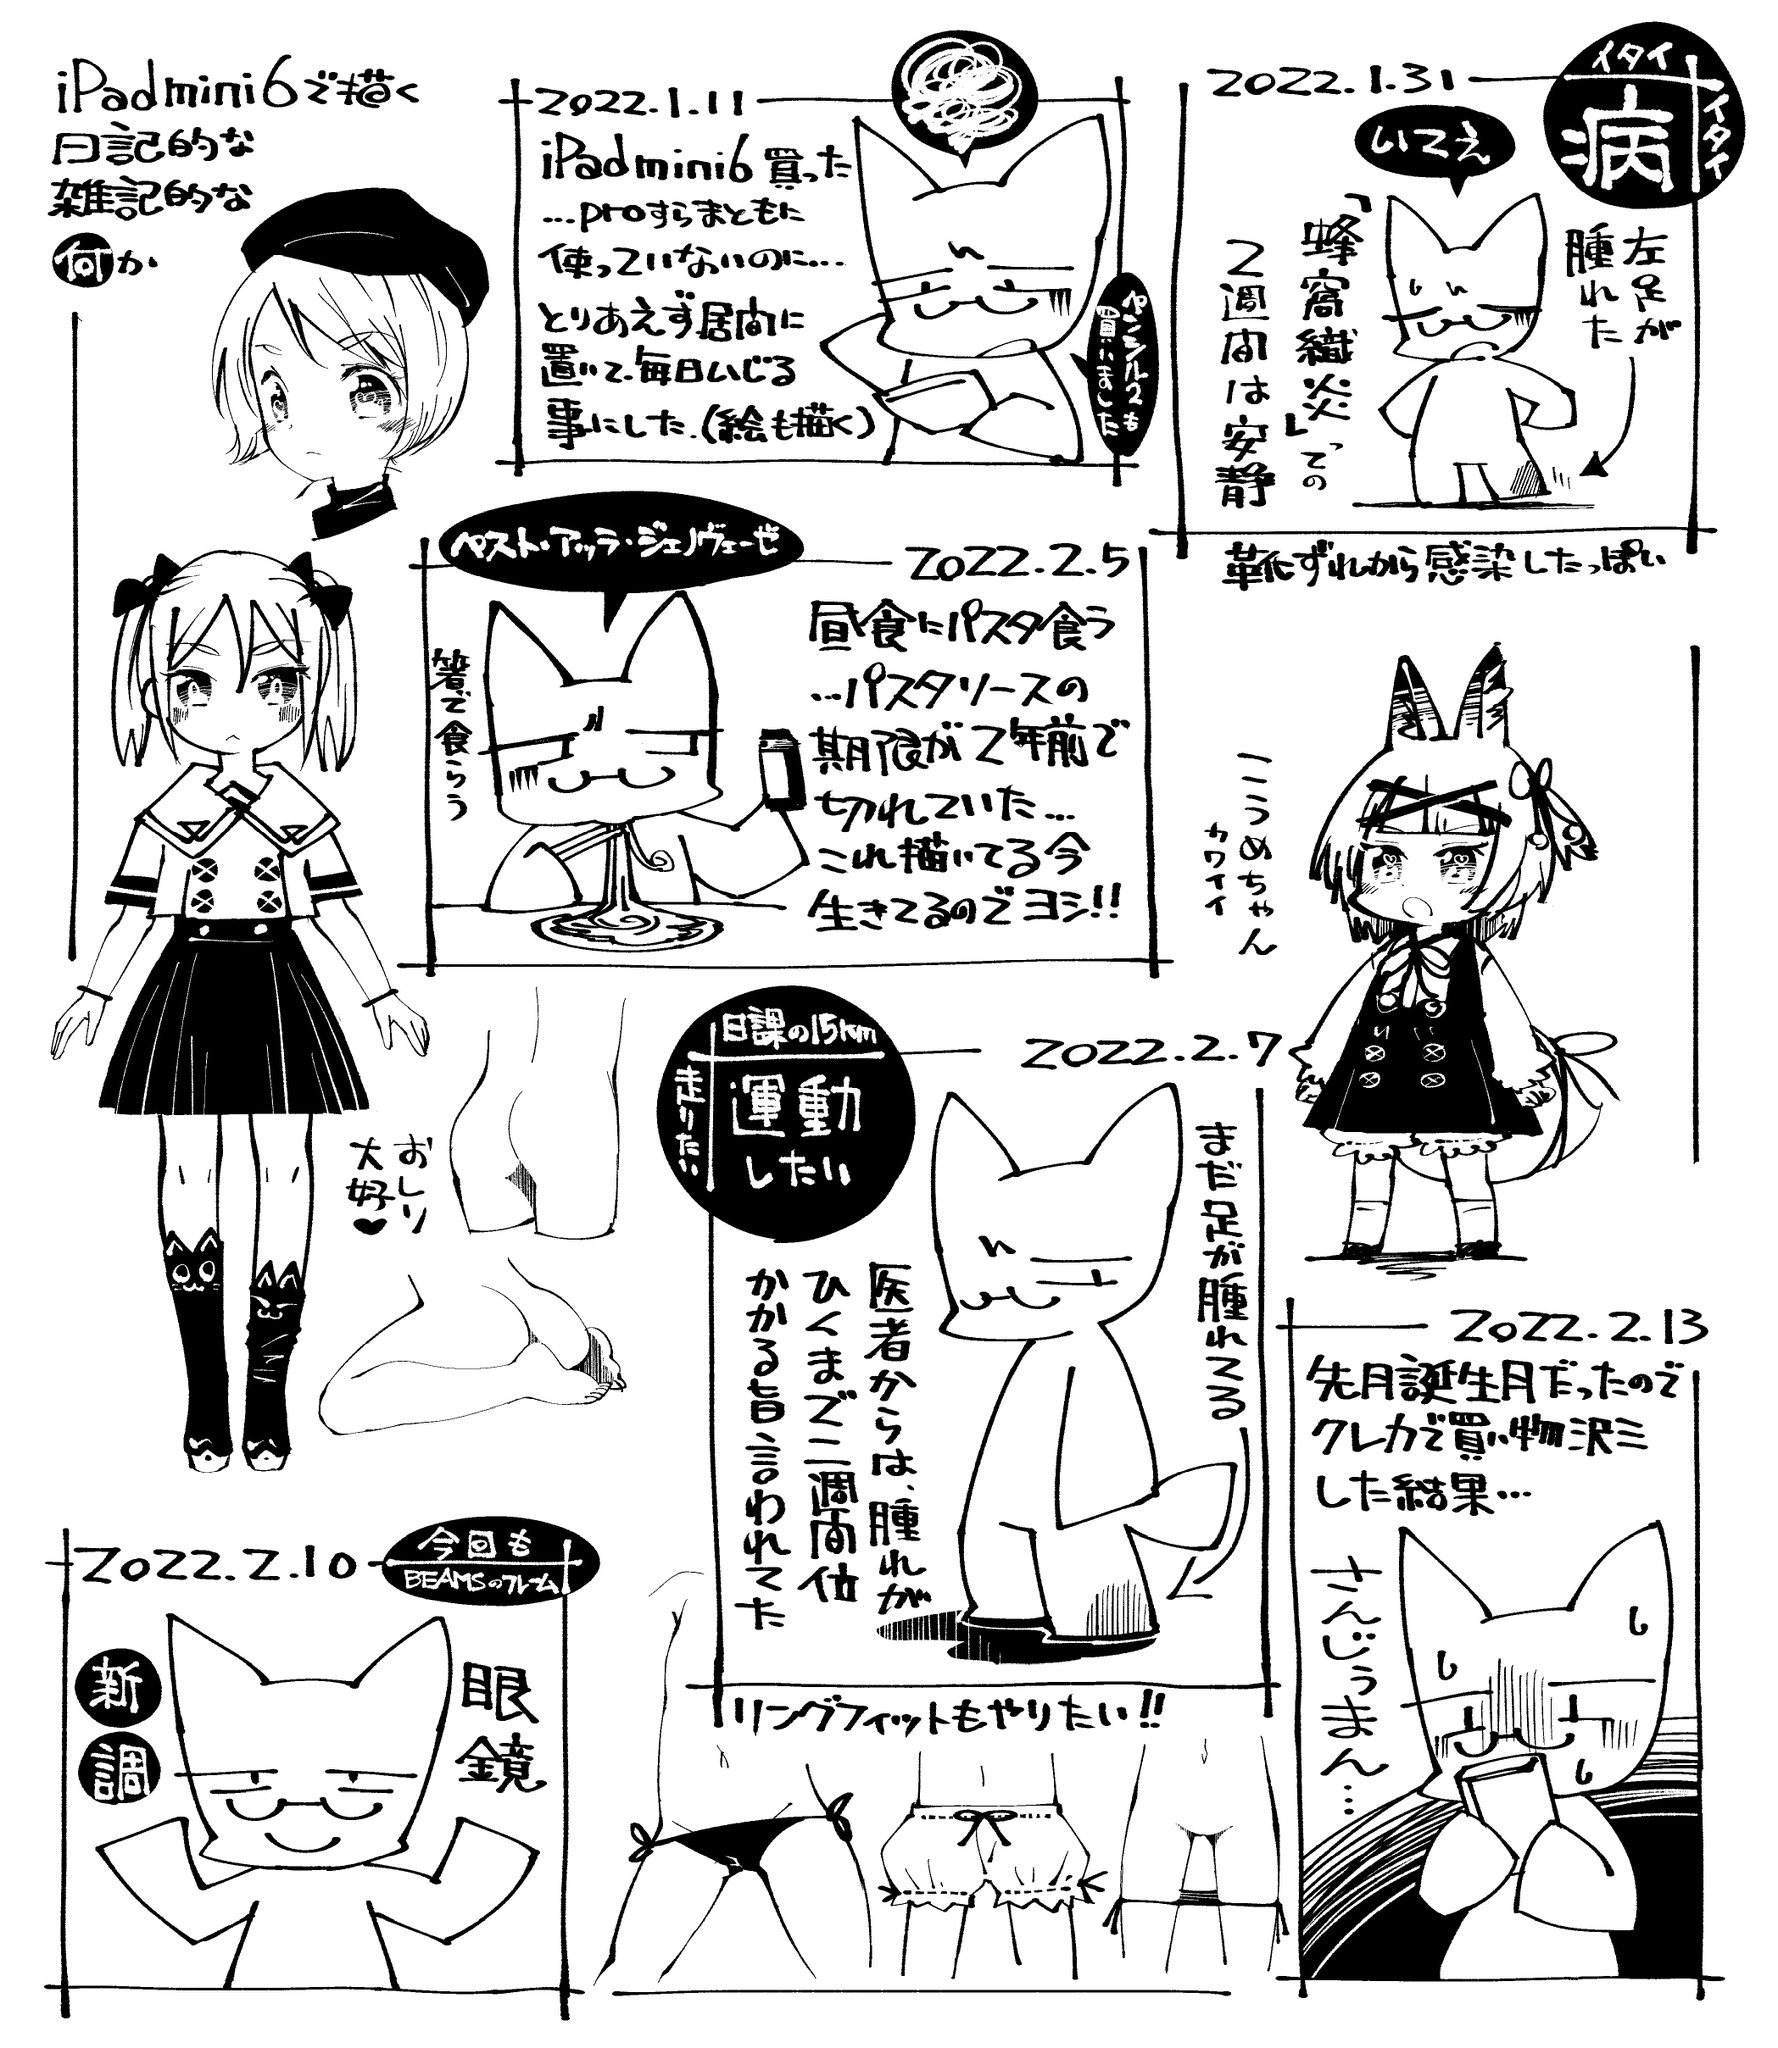 iPadmini6で描く
日記的な
雑記的な
何か
2022.1.11
iPadmini6買った
…proすらまともに
使っていないのに…
とりあえず居間に
置いて、毎日いじる
事にした.(絵も描く)
ペンシル2も
買いました
2022.1.31
イタイ
イタイ
病
いてぇ
左足が
腫れた
「蜂窩織炎」での
2週間は安静
靴ずれから感染したっぽい
ペスト・アッラ・ジェノヴェーゼ
2022.2.5
箸で食らう
昼食にパスタ食う
…パスタソースの
期限が2年前で
切れていた…
これ描いてる今
生きてるのでヨシ!!
こうめちゃん
カワイイ
おしり
大好♥
日課の15km
走りたい
運動
したい
2022.2.7
まだ足が腫れてる
医者からは、腫れが
ひくまで二週間位
かかる旨言われてた
リングフィットもやりたい!!
2022.2.10
今回も
BEAMSのフレーム
新
調
眼
鏡
2022.2.13
先月誕生月だったので
クレカで買い物沢ミ
した結果…
さんじぅまん…